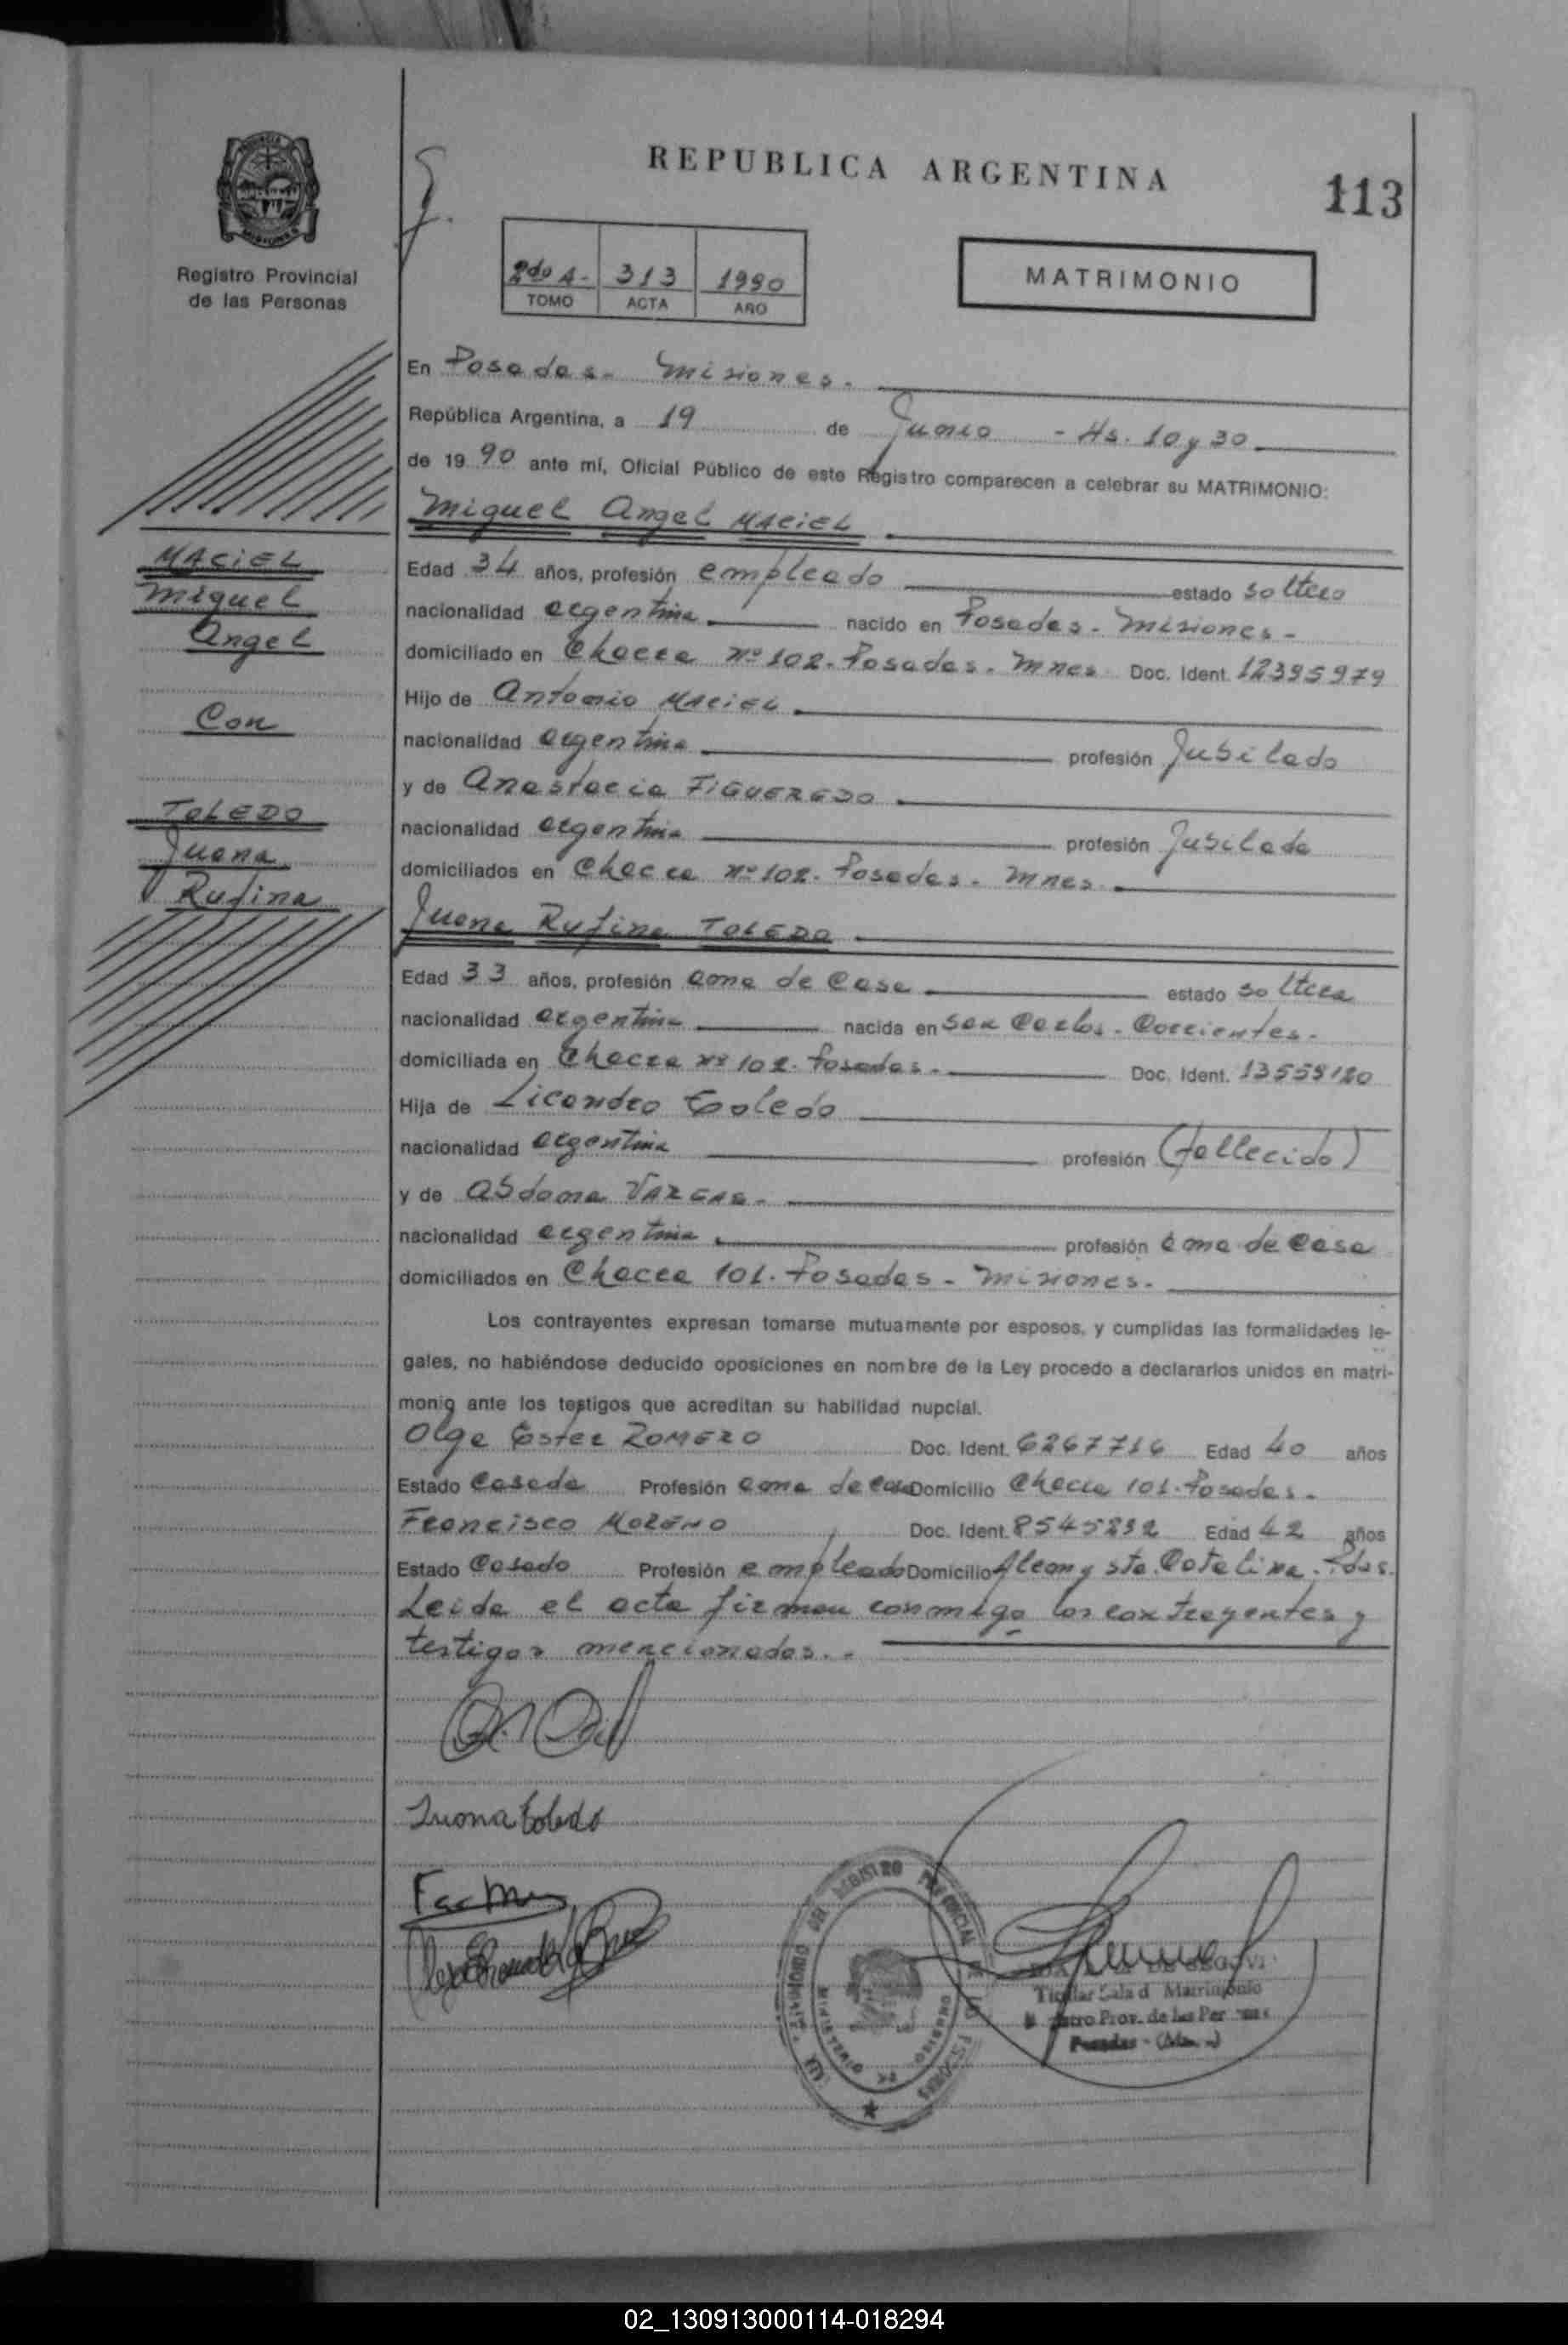 REPUBLICA ARGENTINA
113
Registro Provincial
de las Personas
2do A- 313 1990
TOMO ACTA AÑO
MATRIMONIO
En Posadas- Misiones.
República Argentina, a 19 de Junio - Hs. 10 y 30
de 19 90 ante mí, Oficial Público de este Registro comparecen a celebrar su MATRIMONIO:
Miguel Angel MACIEL
MACIEL
Miguel
Angel
Con
TOLEDO
Juana
Rufina
Edad 34 años, profesión empleado estado soltero
nacionalidad argentina nacido en Posadas- Misiones-
domiciliado en Chacra nº 102. Posadas. Mnes Doc. Ident. 12395979
Hijo de Antonio MACIEL
nacionalidad argentina profesión Jubilado
y de Anastacia FIGUEREDO
nacionalidad argentina profesión Jubilada
domiciliados en Chacra nº 102. Posadas. Mnes
Juana Rufina TOLEDO
Edad 33 años, profesión ama de Casa estado soltera
nacionalidad argentina nacida en San Carlos- Corrientes-
domiciliada en Chacra nº 102. Posadas. Doc. Ident. 13558120
Hija de Licandro Toledo
nacionalidad argentina profesión (fallecido)
y de VARGAS-
nacionalidad argentina profesión ama de Casa
domiciliados en Chacra 101. Posadas- Misiones.
Los contrayentes expresan tomarse mutuamente por esposos, y cumplidas las formalidades le-
gales, no habiéndose deducido oposiciones en nombre de la Ley procedo a declararlos unidos en matri-
monio ante los testigos que acreditan su habilidad nupcial.
Olga Ester ROMERO Doc. Ident. 6267716 Edad 40 años
Estado Casada Profesión ama de casa Domicilio Chacra 101. Posadas.
Francisco MORENO Doc. Ident. 8545232 Edad 42 años
Estado Casado Profesión empleado Domicilio y Sta. Catalina. Pdas.
Leida el acta firman conmigo los contrayentes y
testigos mencionados.-
Juana Toledo
Titular Sala d Matrimonio
Prov. de las Per
Posadas - 
02_130913000114-018294